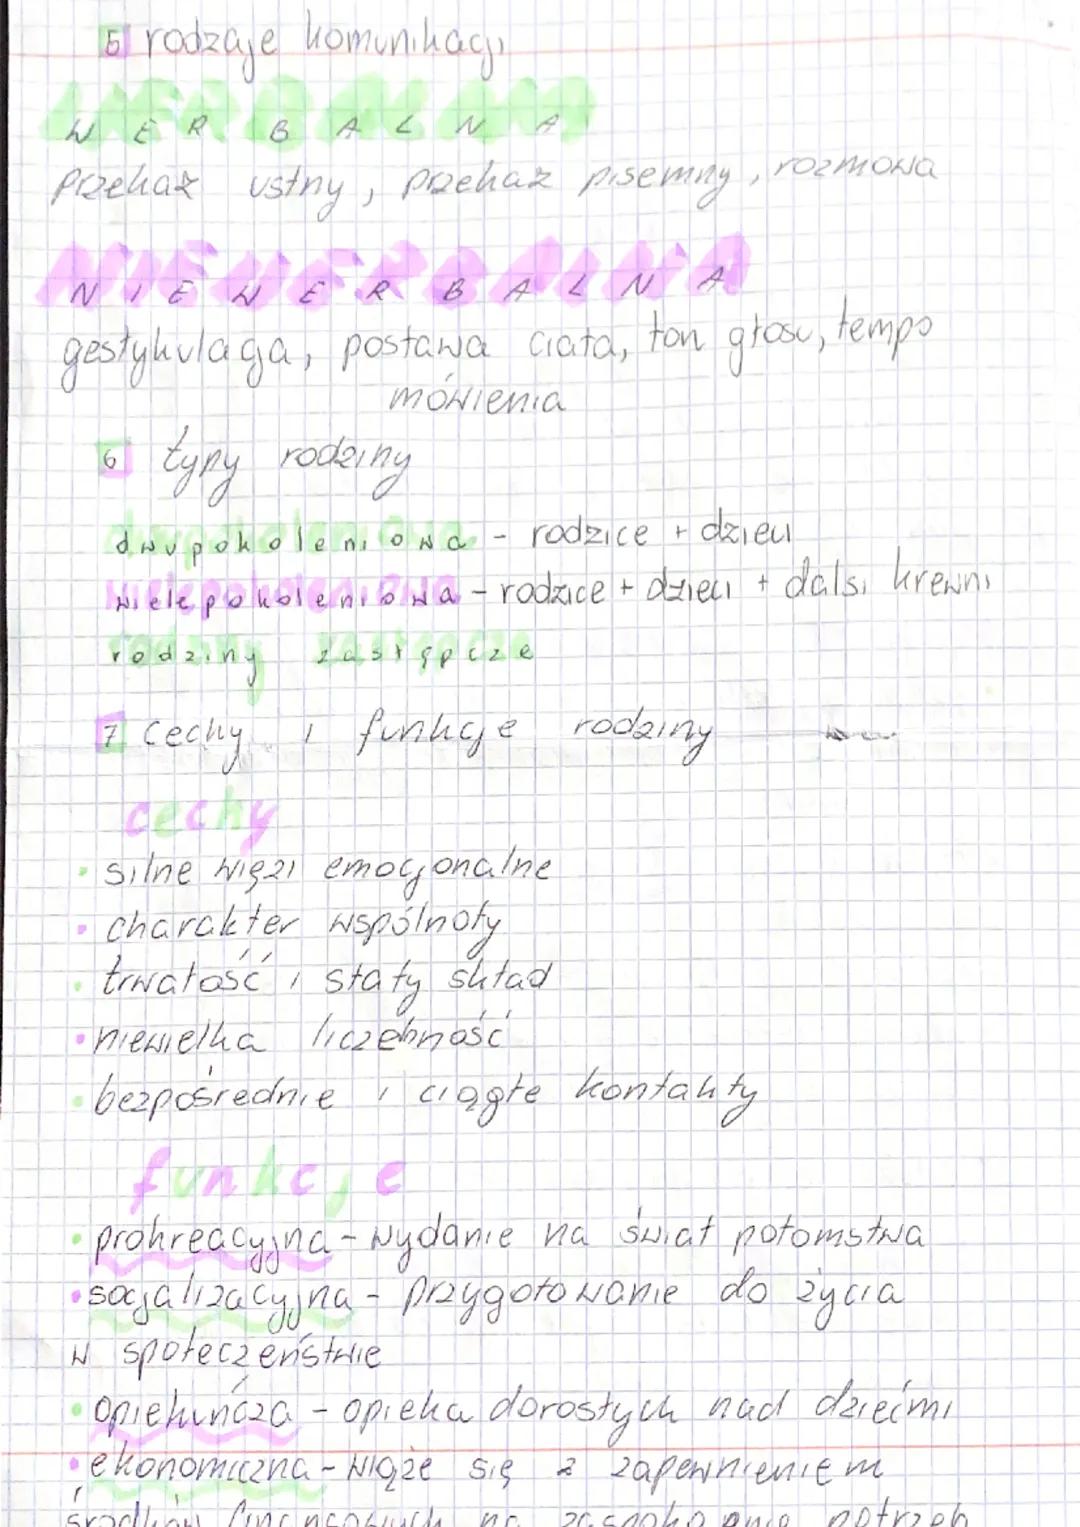 5 rodzaje komunikacji
WERBALNA
przekaz ustny, przekaz pisemny, rozmowa
NIEWERBALNA
gestykulacja, postawa ciała, ton głosu, tempo
mówienia
6 typy rodziny
dwupokoleniowa - rodzice + dzieci
wielepokoleniowa - rodzice + dzieci + dalsi krewni
rodziny zastępcze
7 cechy i funkcje rodziny
cechy
• silne więzi emocjonalne
• charakter wspólnoty
• trwałość i stały skład
• niewielka liczebność
• bezpośrednie i ciągłe kontakty
funkcje
• prokreacyjna - wydanie na świat potomstwa
• socjalizacyjna - przygotowanie do życia
w społeczeństwie
• opiekuńcza - opieka dorosłych nad dziećmi
• ekonomiczna - wiąże się z zapewnieniem
środków finansowych na zaspokojenie potrzeb